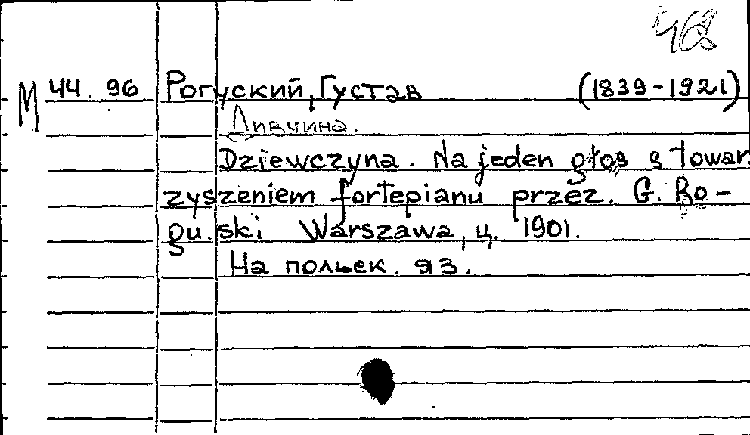 462
М 44.96 Рогуский, Густав (1839-1921)
Дивчина.
Dziewczyna. Na jeden głos z towar
zyszeniem fortepianu przez. G. Ro-
guski Warszawa, ц. 1901.
На польск. яз.